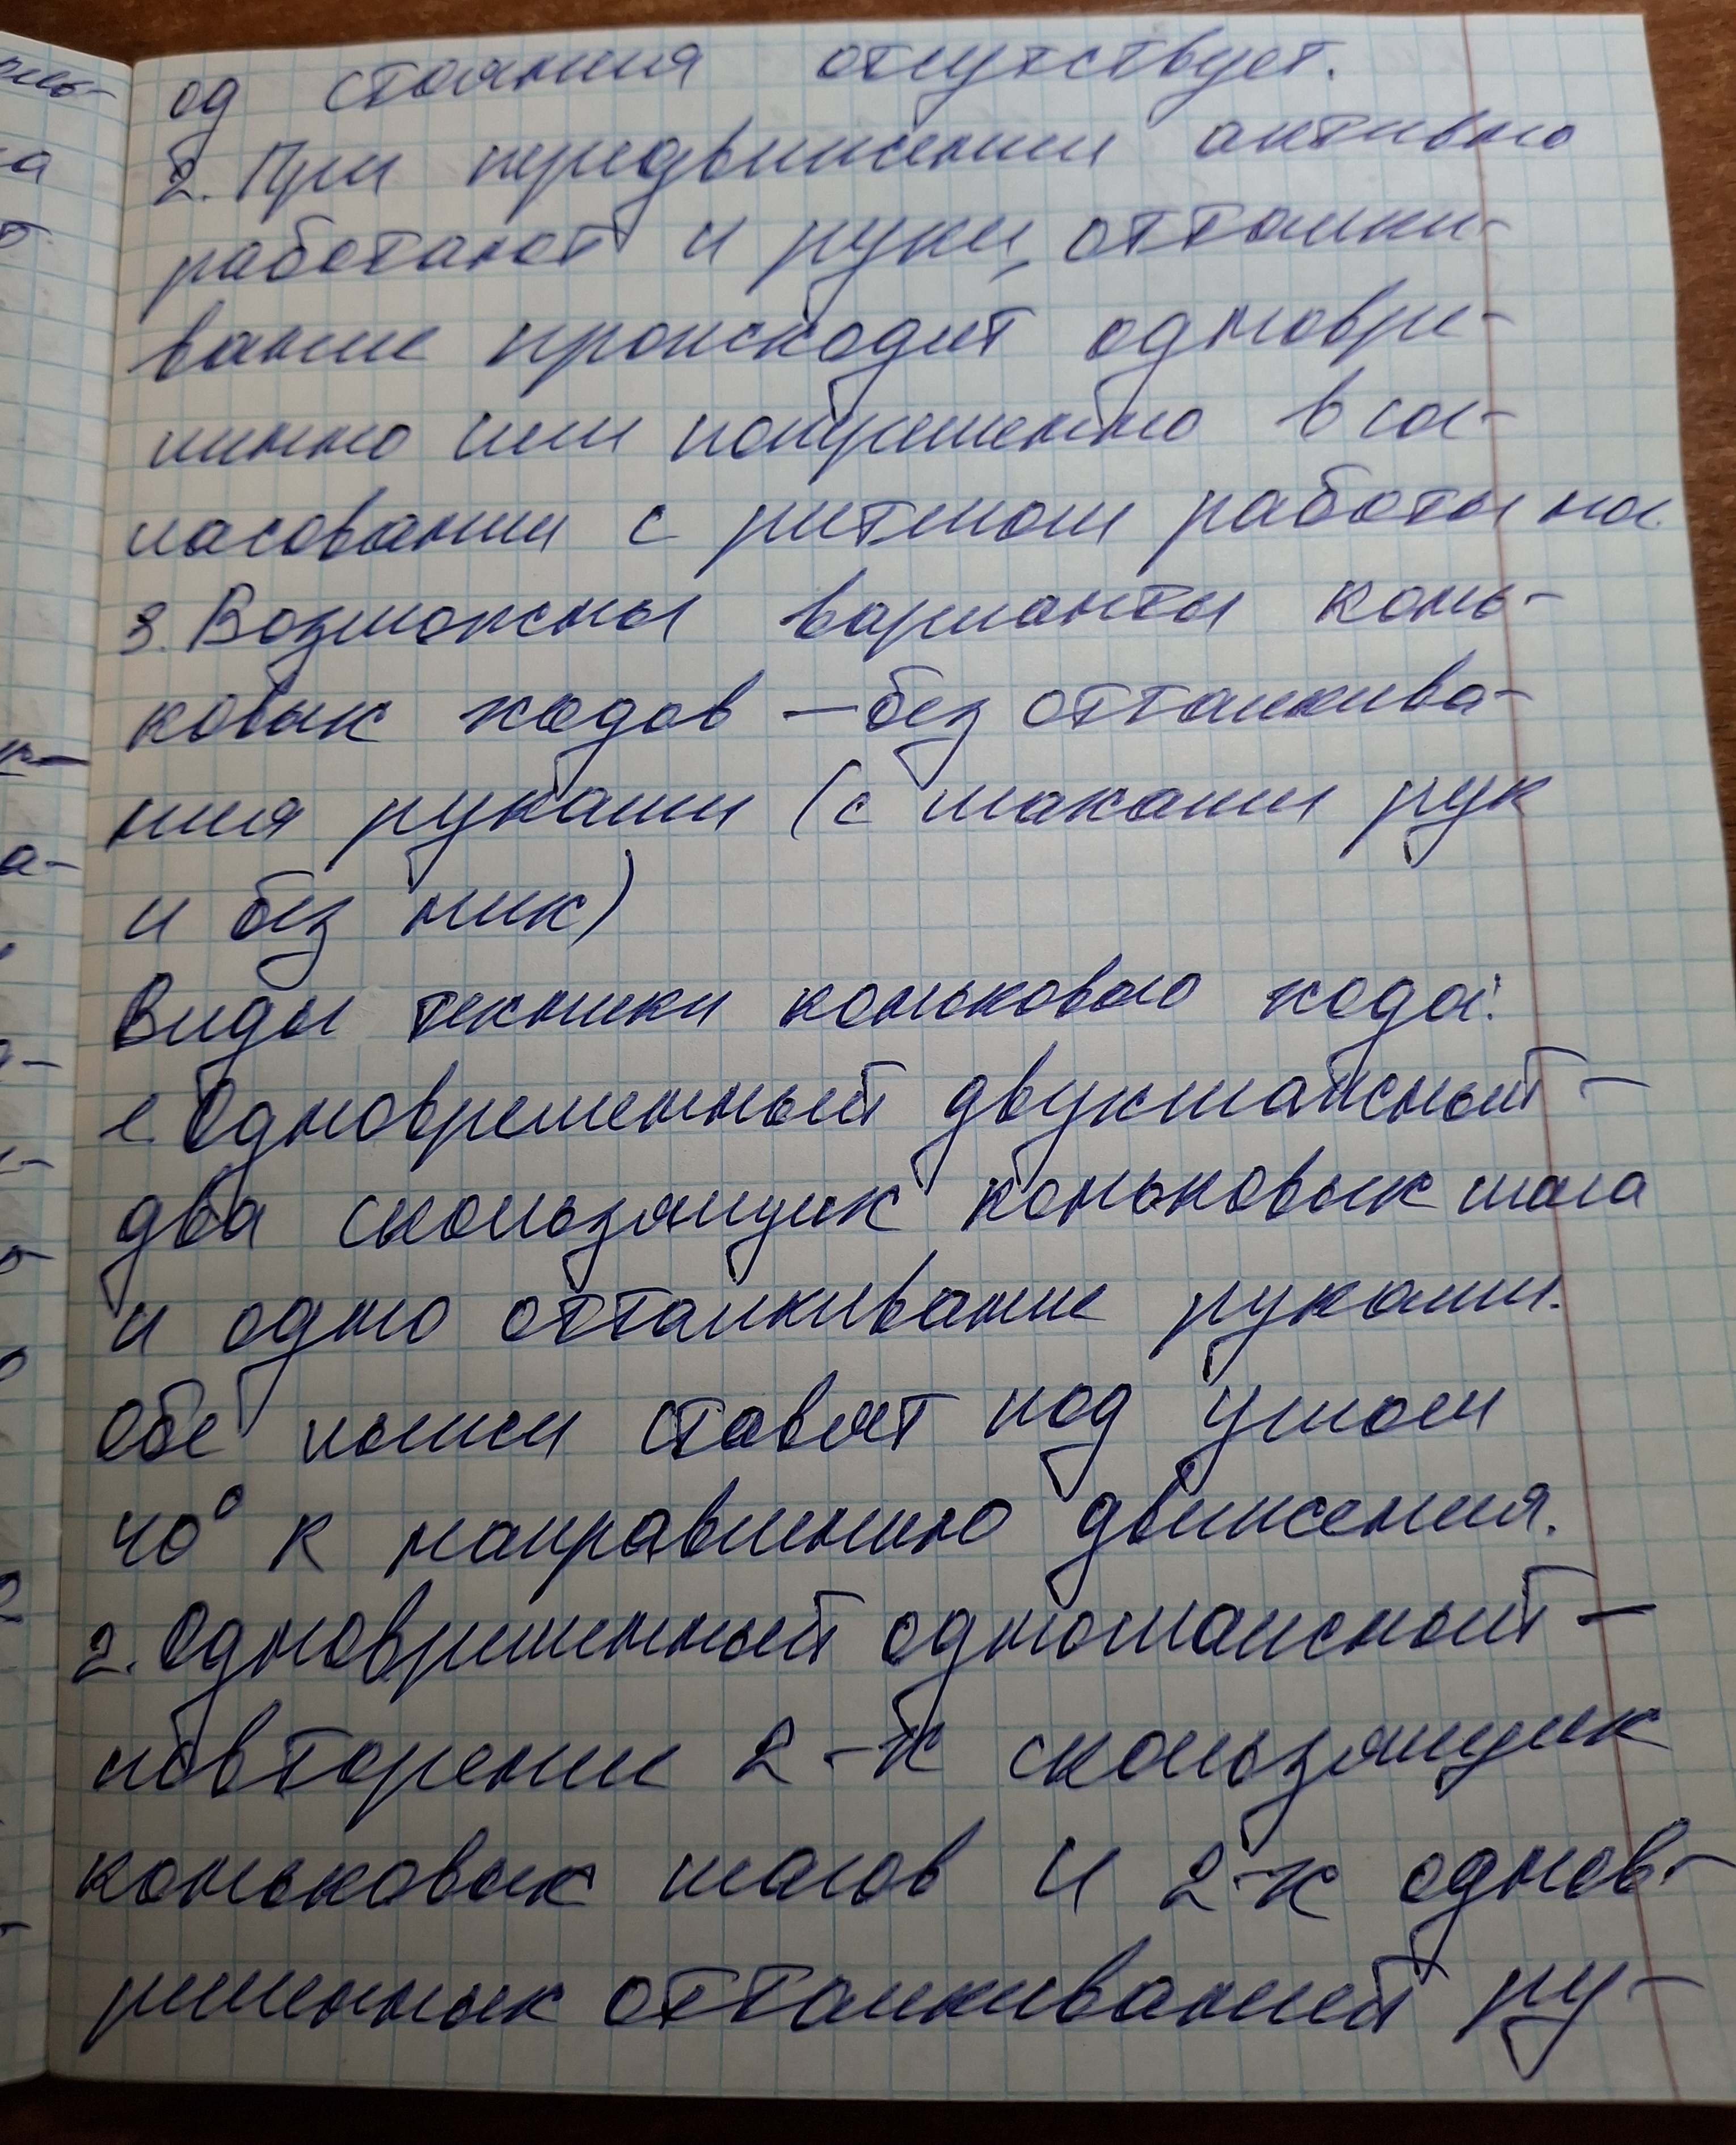 од стояния отсутствует.
2. При передвижении активно
работают и руки, отталки-
вание происходит одновре-
менно или попеременно в сог-
ласовании с ритмом работы ног.
3. Возможны варианты конь-
ковых ходов – без отталкива-
ния руками (с махами рук
и без них)
Виды техники конькового хода:
1. Одновременный двухшажный –
два скользящих коньковых шага
и одно отталкивание руками.
Обе лыжи ставят под углом
40° к направлению движения.
2. Одновременный одношажный –
повторении 2-х скользящих
коньковых шагов и 2-х однов-
ременных отталкиваний ру-